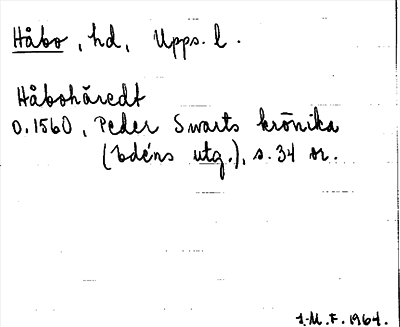 Håbo, hd, Upps. l.
Håbohäredt
o. 1560, Peder Swarts krönika
(Edéns utg.), s. 34 or.
J.M.F. 1964.